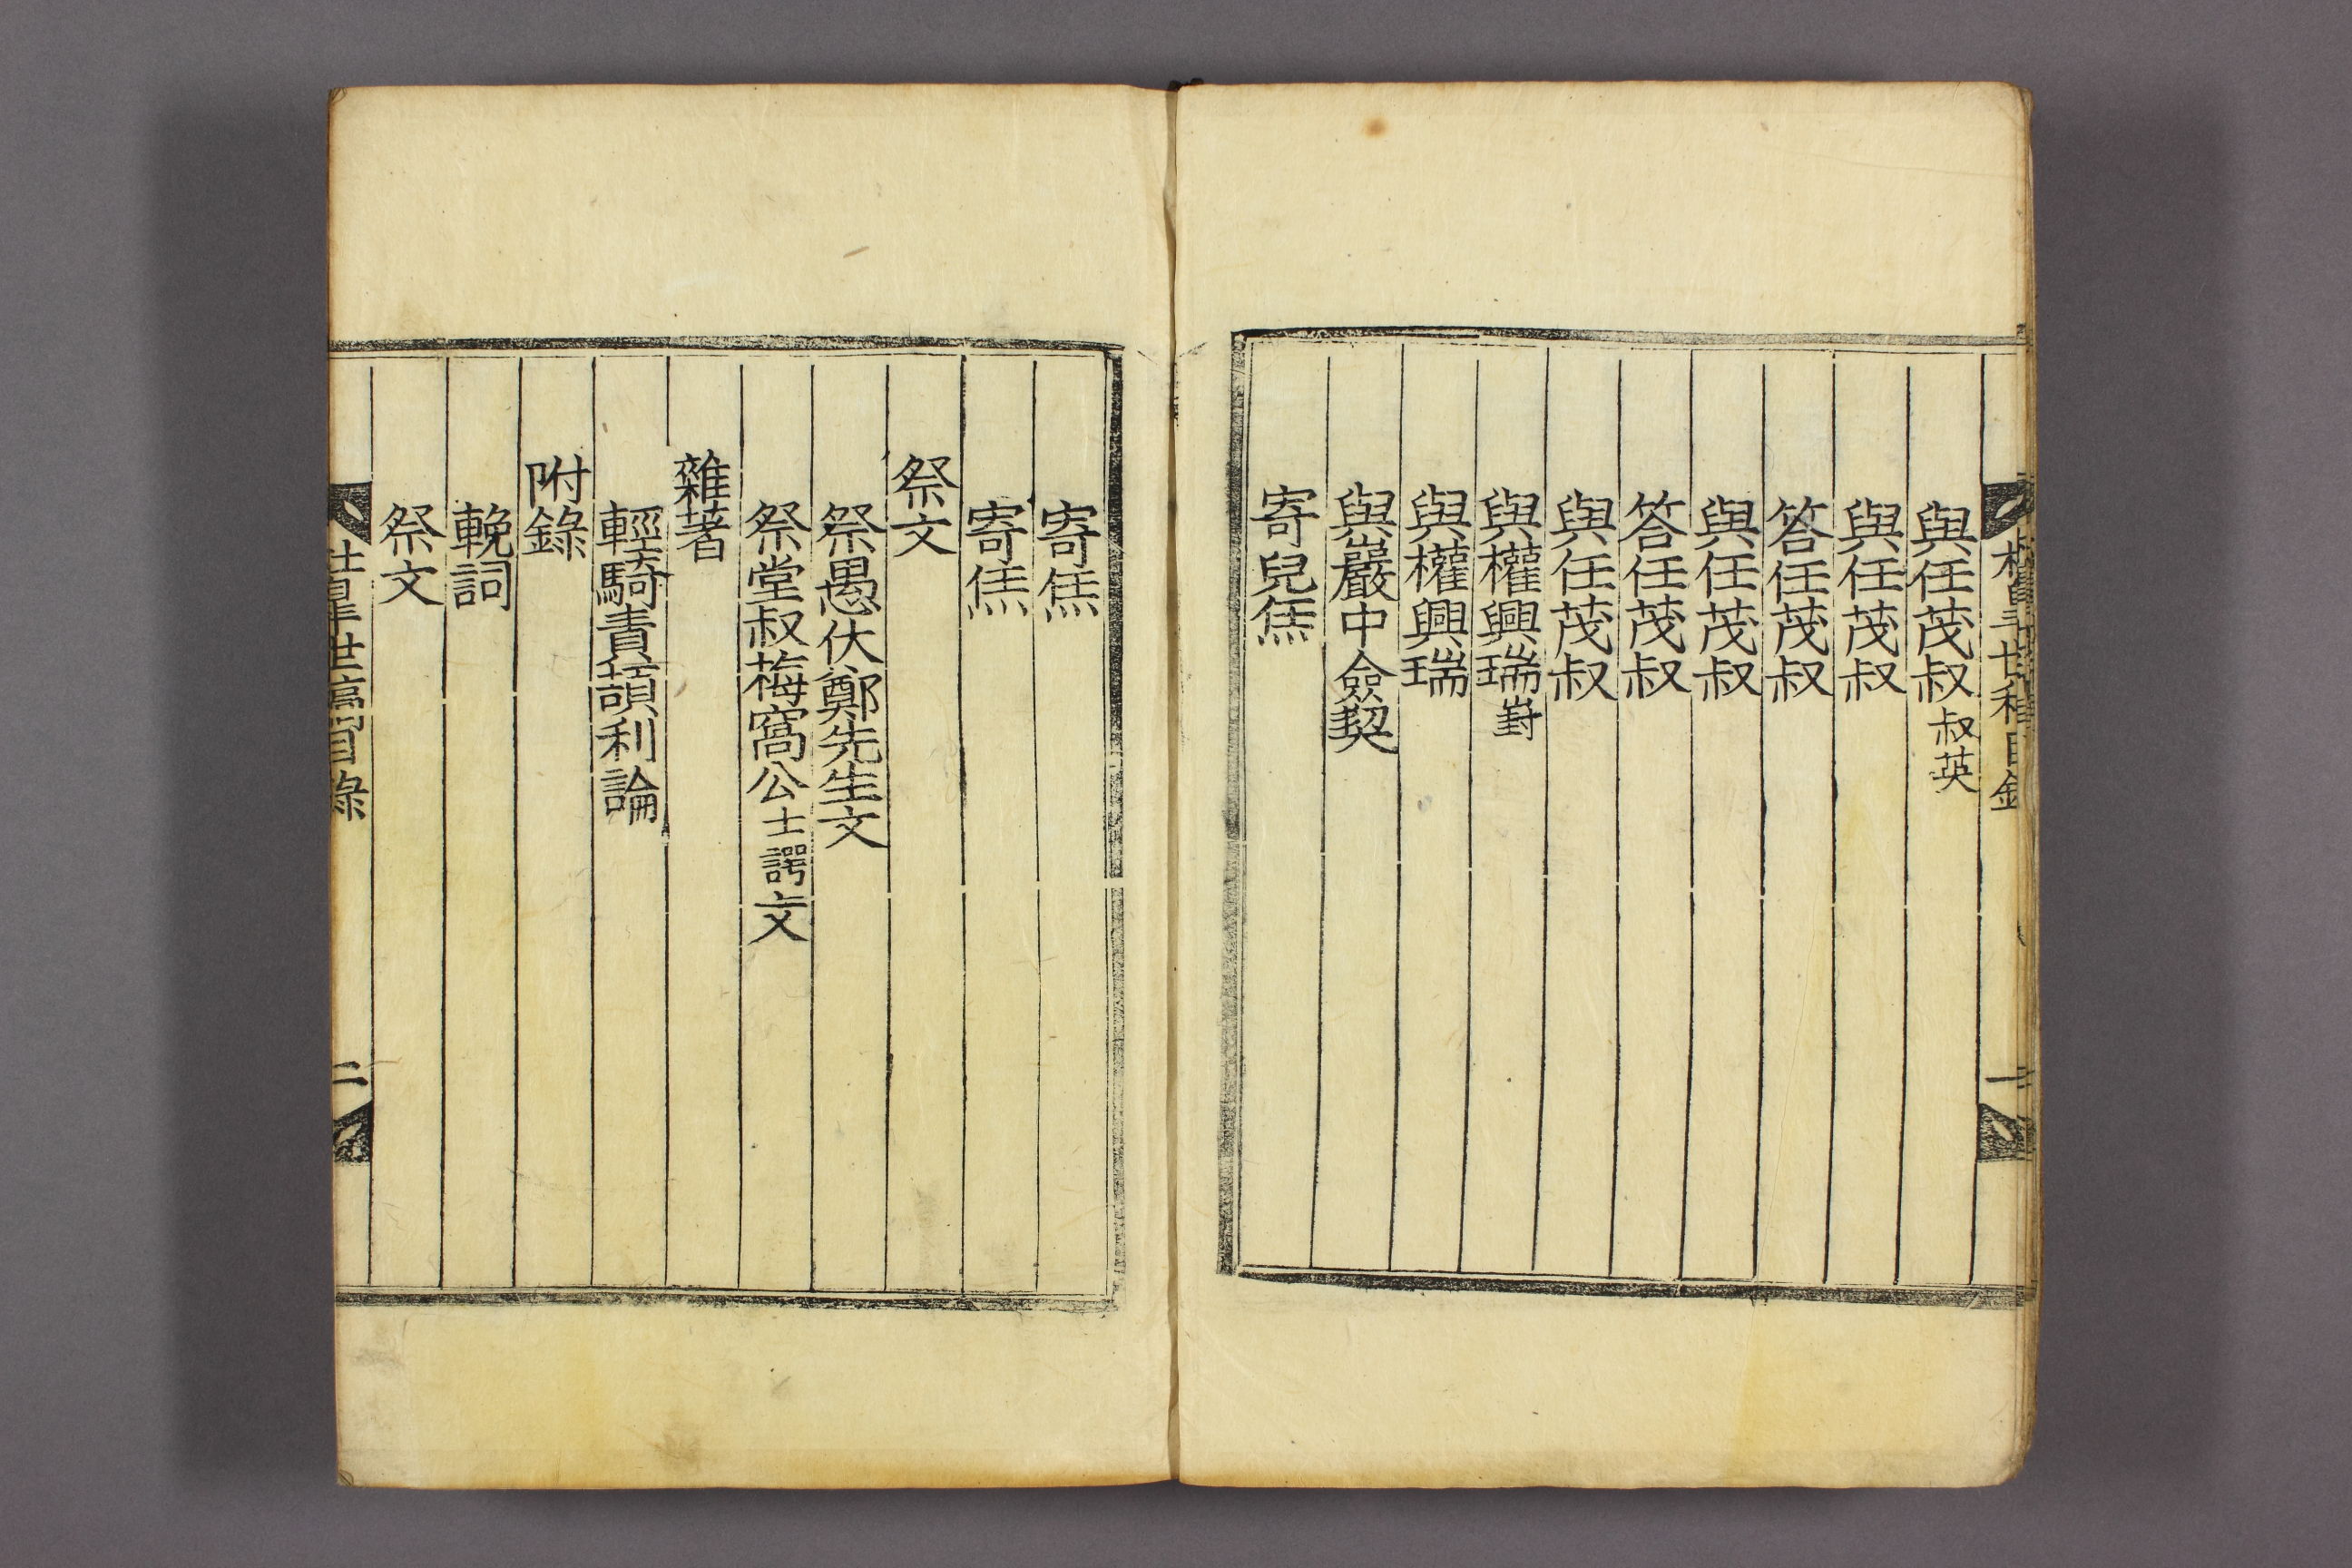 世稿目錄 一
與任茂叔叔英
與任茂叔
答任茂叔
與任茂叔
答任茂叔
與任茂叔
與權興瑞崶
與權興瑞
與嚴中僉契
寄兒
寄
寄
祭文
祭愚伏鄭先生文
祭堂叔梅窩公士諤文
雜著
輕騎責頡利論
附錄
輓詞
祭文
皐世稿目錄 二